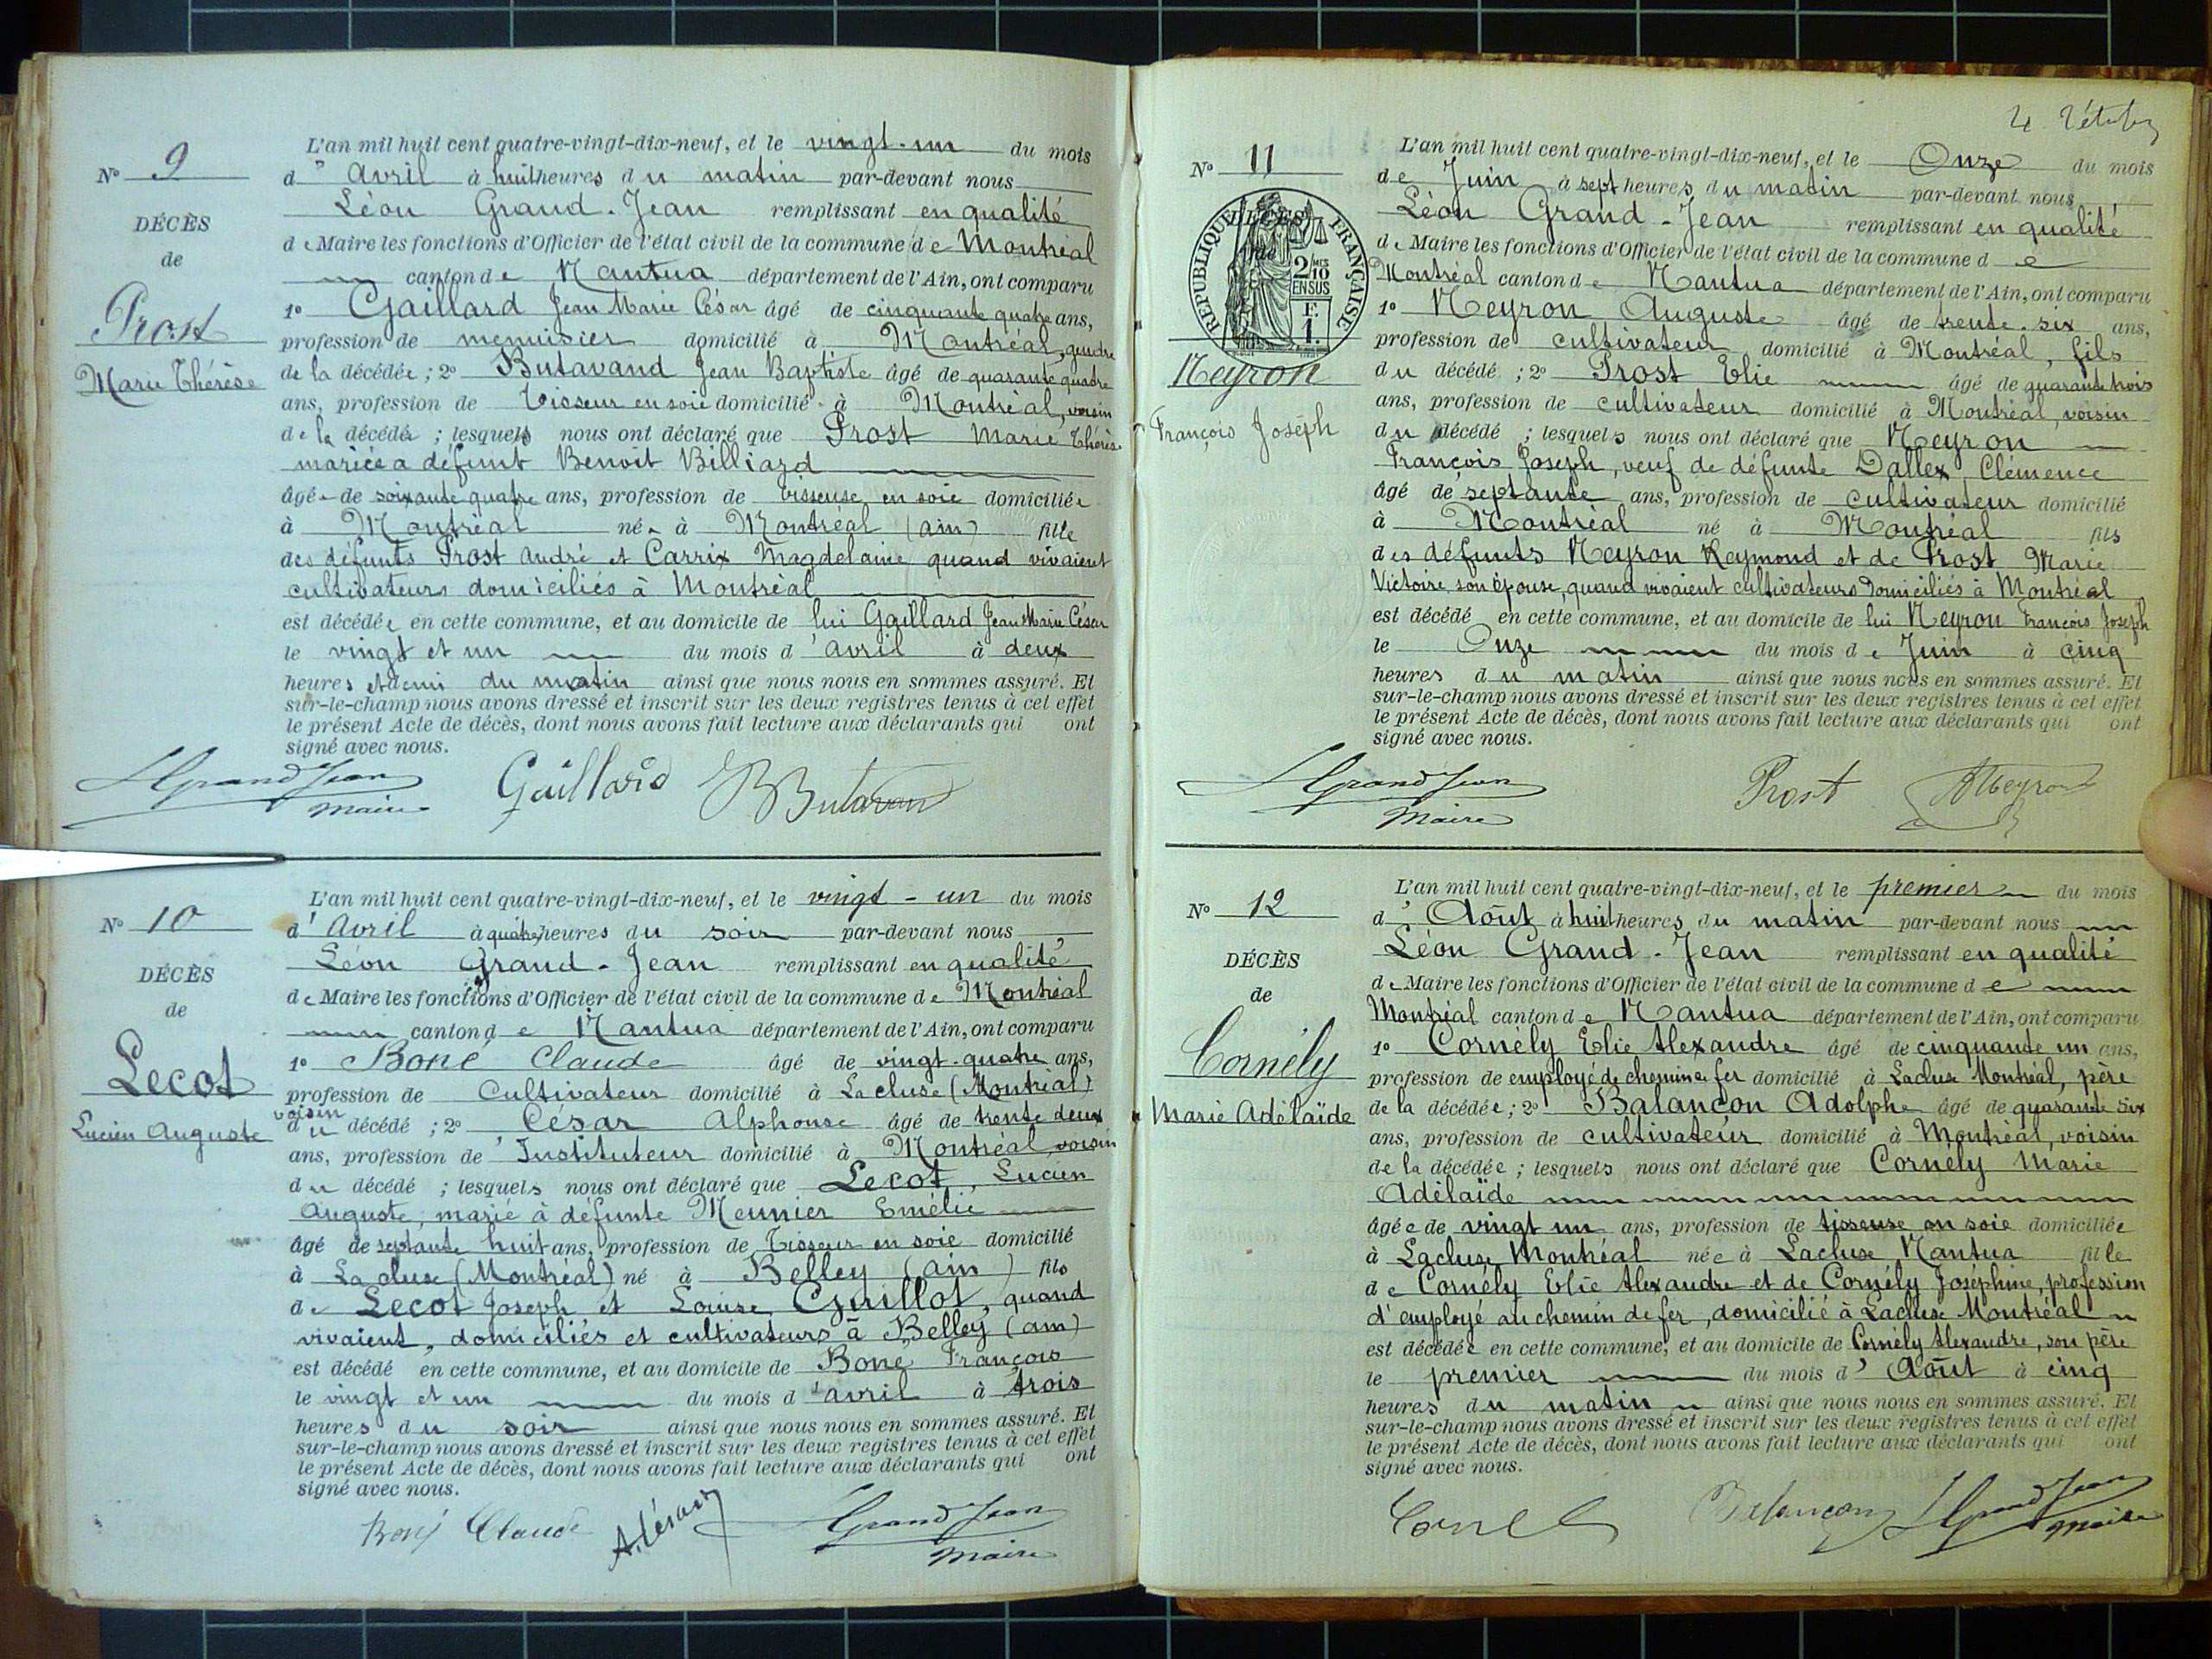 N° 9
DÉCÈS
de
Prost
Marie Thérèse
L'an mil huit cent quatre-vingt-dix-neuf, et le vingt-un du mois
d'Avril à huit heures du matin par-devant nous
Léon Grand-Jean remplissant en qualité
de Maire les fonctions d'Officier de l'état civil de la commune de Montréal
canton de Nantua département de l'Ain, ont comparu
1° Gaillard Jean Marie César âgé de cinquante quatre ans,
profession de menuisier domicilié à Montréal, gendre
de la décédée ; 2° Butavand Jean Baptiste âgé de quarante quatre
ans, profession de Tisseur en soie domicilié à Montréal, voisin
de la décédée ; lesquels nous ont déclaré que Prost Marie Thérèse
mariée a défunt Benoit Billiard
âgée de soixante quatre ans, profession de tisseuse en soie domiciliée
à Montréal née à Montréal (ain) fille
des défunts Prost André et Carrix Magdelaine quand vivaient
cultivateurs domiciliés à Montréal
est décédée en cette commune, et au domicile de lui Gaillard Jean Marie César
le vingt et un du mois d'avril à deux
heures et demi du matin ainsi que nous nous en sommes assuré. Et
sur-le-champ nous avons dressé et inscrit sur les deux registres tenus à cet effet
le présent Acte de décès, dont nous avons fait lecture aux déclarants qui ont
signé avec nous.
LGrand Jean Gaillard Butavan
maire
N° 10
DÉCÈS
de
Lecot
Lucien Auguste
L'an mil huit cent quatre-vingt-dix-neuf, et le vingt-un du mois
d'Avril à quatre heures du soir par-devant nous
Léon Grand-Jean remplissant en qualité
de Maire les fonctions d'Officier de l'état civil de la commune de Montréal
canton de Nantua département de l'Ain, ont comparu
1° Boné Claude âgé de vingt-quatre ans,
profession de Cultivateur domicilié à La cluse (Montréal)
voisin
du décédé ; 2° César Alphonse âgé de trente deux
ans, profession de Instituteur domicilié à Montréal, voisin
du décédé ; lesquels nous ont déclaré que Lecot, Lucien
Auguste, marié à défunte Meunier Emélie
âgé de septante huit ans, profession de Tisseur en soie domicilié
à La cluse (Montréal) né à Belley (ain) fils
de Lecot Joseph et Louise Guillot, quand
vivaient, domiciliés et cultivateurs à Belley (ain)
est décédé en cette commune, et au domicile de Boné François
le vingt et un du mois d'avril à trois
heures du soir ainsi que nous nous en sommes assuré. Et
sur-le-champ nous avons dressé et inscrit sur les deux registres tenus à cet effet
le présent Acte de décès, dont nous avons fait lecture aux déclarants qui ont
signé avec nous.
Boné Claude A. César LGrand Jean
maire
N° 11
DÉCÈS
de
RÉPUBLIQUE FRANÇAISE
2 MES
10
EN SUS
F.
1.
Neyron
François Joseph
L'an mil huit cent quatre-vingt-dix-neuf, et le Onze du mois
de Juin à sept heures du matin par-devant nous
Léon Grand-Jean remplissant en qualité
de Maire les fonctions d'Officier de l'état civil de la commune de
Montréal canton de Nantua département de l'Ain, ont comparu
1° Neyron Auguste âgé de trente-six ans,
profession de cultivateur domicilié à Montréal, fils
du décédé ; 2° Prost Elie âgé de quarante trois
ans, profession de cultivateur domicilié à Montréal, voisin
du décédé ; lesquels nous ont déclaré que Neyron
François Joseph, veuf de défunte Dallex Clémence
âgé de septante ans, profession de cultivateur domicilié
à Montréal né à Montréal fils
des défunts Neyron Reymond et de Prost Marie
Victoire son épouse, quand vivaient cultivateurs domiciliés à Montréal
est décédé en cette commune, et au domicile de lui Neyron François Joseph
le Onze du mois de Juin à cinq
heures du matin ainsi que nous nous en sommes assuré. Et
sur-le-champ nous avons dressé et inscrit sur les deux registres tenus à cet effet
le présent Acte de décès, dont nous avons fait lecture aux déclarants qui ont
signé avec nous.
LGrand Jean Prost ANeyron
maire
N° 12
DÉCÈS
de
Cornély
Marie Adélaïde
L'an mil huit cent quatre-vingt-dix-neuf, et le premier du mois
d'Août à huit heures du matin par-devant nous
Léon Grand-Jean remplissant en qualité
de Maire les fonctions d'Officier de l'état civil de la commune de
Montréal canton de Nantua département de l'Ain, ont comparu
1° Cornély Elie Alexandre âgé de cinquante un ans,
profession de employé de chemin de fer domicilié à Lacluse Montréal, père
de la décédée ; 2° Balançon Adolphe âgé de quarante six
ans, profession de cultivateur domicilié à Montréal, voisin
de la décédée ; lesquels nous ont déclaré que Cornély Marie
Adélaïde
âgée de vingt un ans, profession de tisseuse en soie domiciliée
à Lacluse Montréal née à Lacluse Nantua fille
de Cornély Elie Alexandre et de Cornély Joséphine, profession
d'employé au chemin de fer, domicilié à Lacluse Montréal
est décédée en cette commune, et au domicile de Cornély Alexandre, son père
le premier du mois d'Août à cinq
heures du matin ainsi que nous nous en sommes assuré. Et
sur-le-champ nous avons dressé et inscrit sur les deux registres tenus à cet effet
le présent Acte de décès, dont nous avons fait lecture aux déclarants qui ont
signé avec nous.
Balançon LGrand Jean
maire